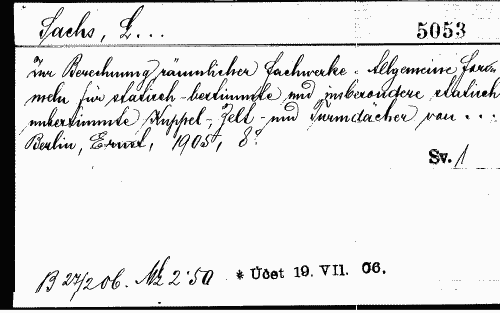 Sachs, L...
5053
Zur Berechnung räumlicher Fachwerke. Allgemeine For-
meln für statisch-bestimmte und insbesondere statisch
unbestimmte Kuppel-, Zelt- und Turmdächer von ...
Berlin, Ernst, 1905, 8°.
Sv. 1
B 27/2 06. Mk 2·50 * Ucet 19. VII. 06.